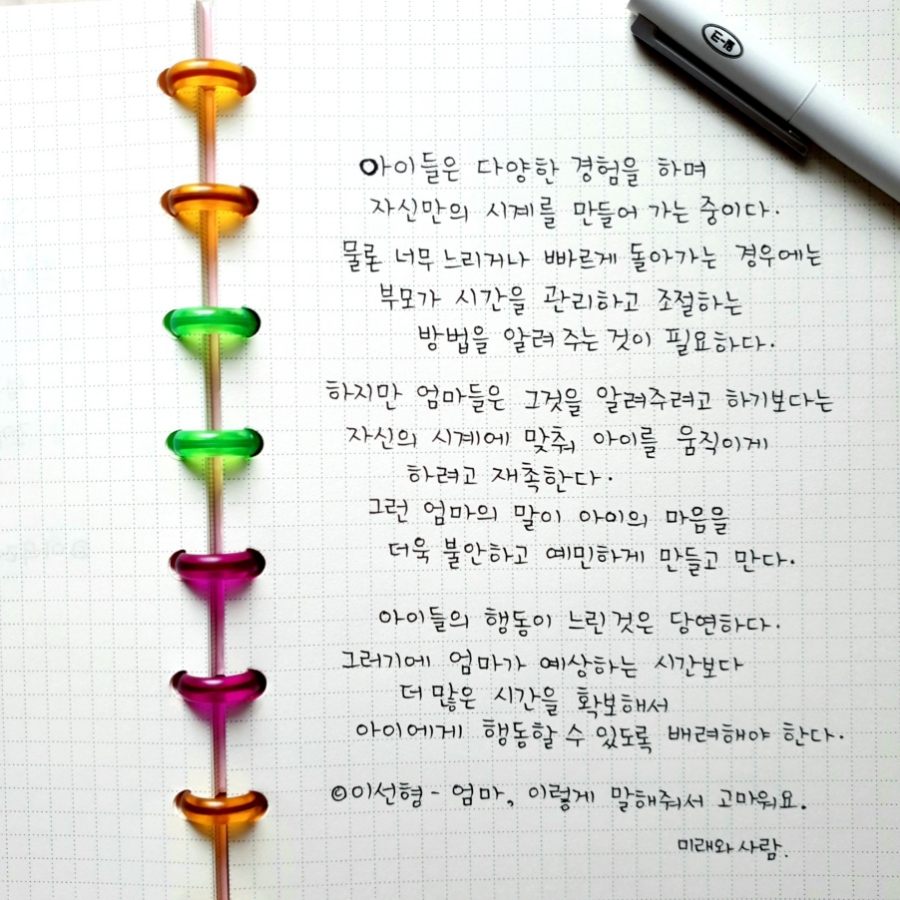 아이들은 다양한 경험을 하며
자신만의 시계를 만들어 가는 중이다.
물론 너무 느리거나 빠르게 돌아가는 경우에는
부모가 시간을 관리하고 조절하는
방법을 알려 주는 것이 필요하다.
하지만 엄마들은 그것을 알려주려고 하기보다는
자신의 시계에 맞춰 아이를 움직이게
하려고 재촉한다.
그런 엄마의 말이 아이의 마음을
더욱 불안하고 예민하게 만들고 만다.
아이들의 행동이 느린 것은 당연하다.
그러기에 엄마가 예상하는 시간보다
더 많은 시간을 확보해서
아이에게 행동할 수 있도록 배려해야 한다.
©이선형 - 엄마, 이렇게 말해줘서 고마워요.
미래와 사람.